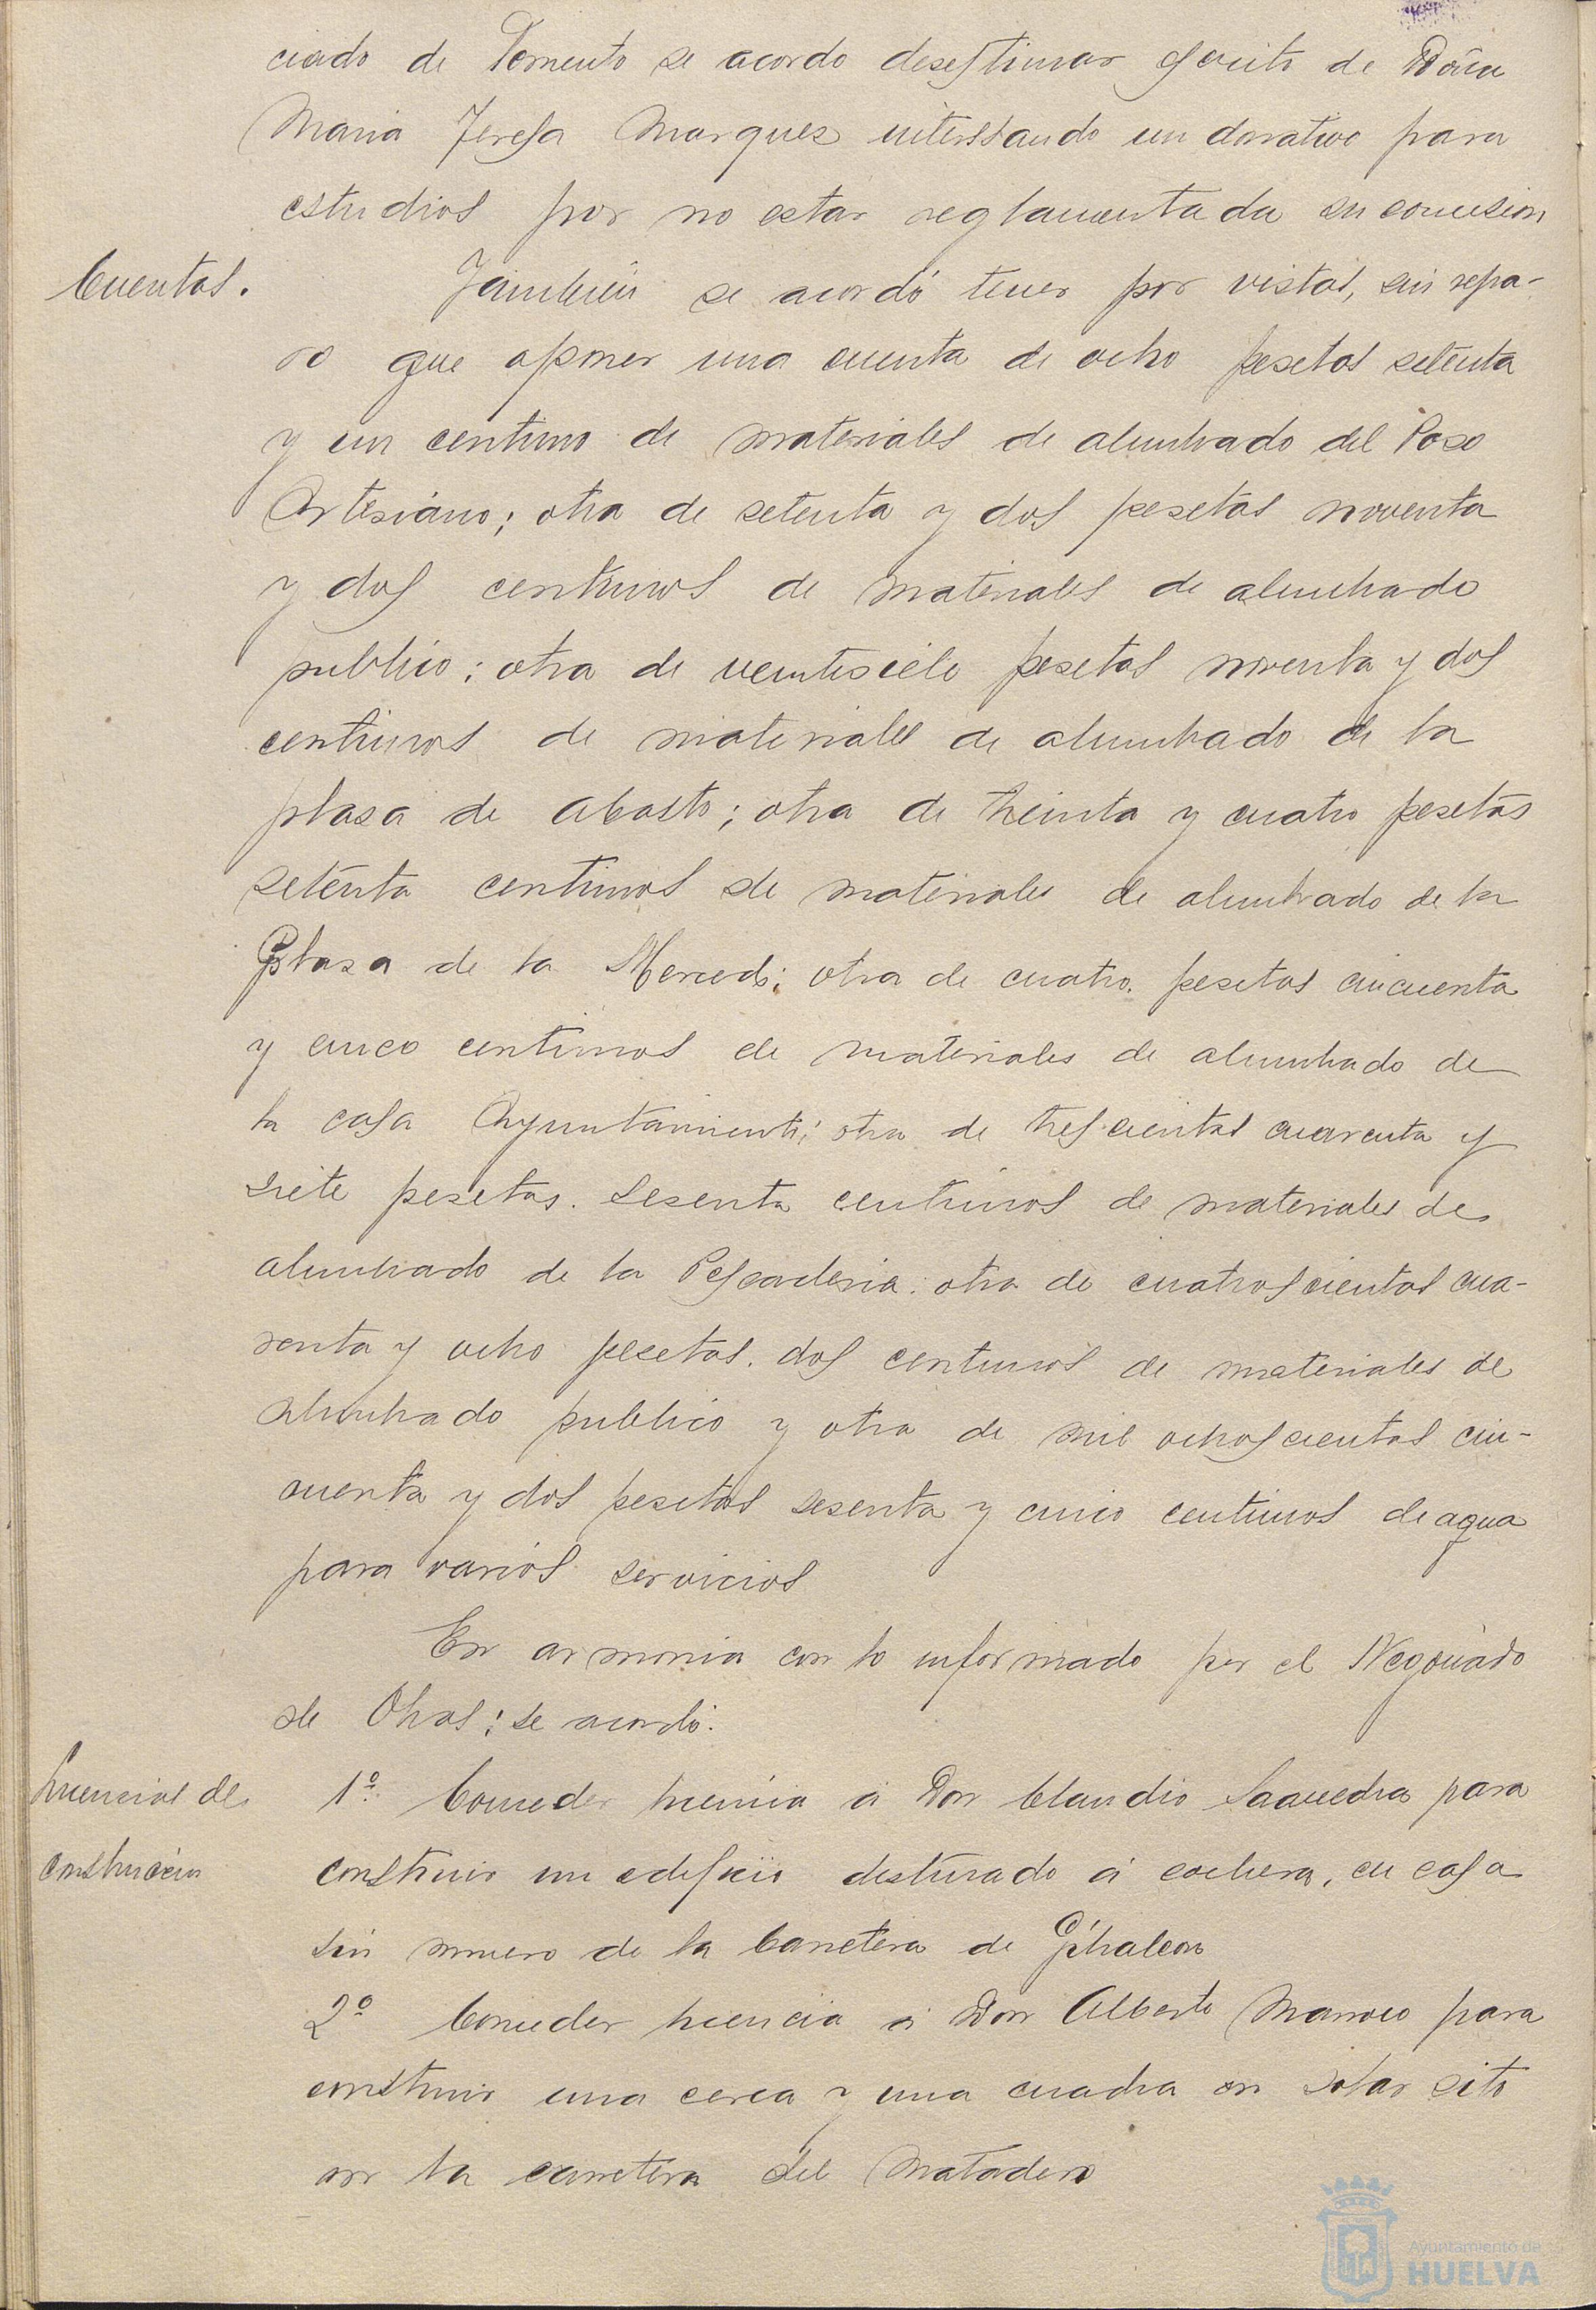 ciado de Fomento se acordo desestimar escrito de Doña
Maria Teresa Marquez interesando un donativo para
estudios por no estar reglamentada su concesion
Cuentas.
Tambien se acordó tener por vistas, sin repa-
ro que oponer una cuenta de ocho pesetas setenta
y un centimo de materiales de alumbrado del Poso
Artesiano; otra de setenta y dos pesetas noventa
y dos centimos de materiales de alumbrado
publico; otra de veintisiete pesetas noventa y dos
centimos de materiales de alumbrado de la
plasa de Abasto; otra de treinta y cuatro pesetas
setenta centimos de materiales de alumbrado de la
Plasa de la Merced; otra de cuatro pesetas cincuenta
y cinco centimos de materiales de alumbrado de
la casa Ayuntamiento; otra de trescientas cuarenta y
siete pesetas sesenta centimos de materiales de
alumbrado de la Pescaderia; otra de cuatroscientas cua-
renta y ocho pesetas dos centimos de materiales de
alumbrado publico y otra de mil ochoscientas cin-
cuenta y dos pesetas sesenta y cinco centimos de agua
para varios servicios
En armonia con lo informado por el Negociado
de Obras; se acordó:
Licencias de
construccion
1º Conceder licencia á Don Claudio Saavedra para
construir un edificio destinado á cochera, en casa
sin numero de la Carretera de Gibraleon
2º Conceder licencia á Don Alberto Marroco para
construir una cerca y una cuadra en solar sito
en la carretera del Matadero
Ayuntamiento de
HUELVA